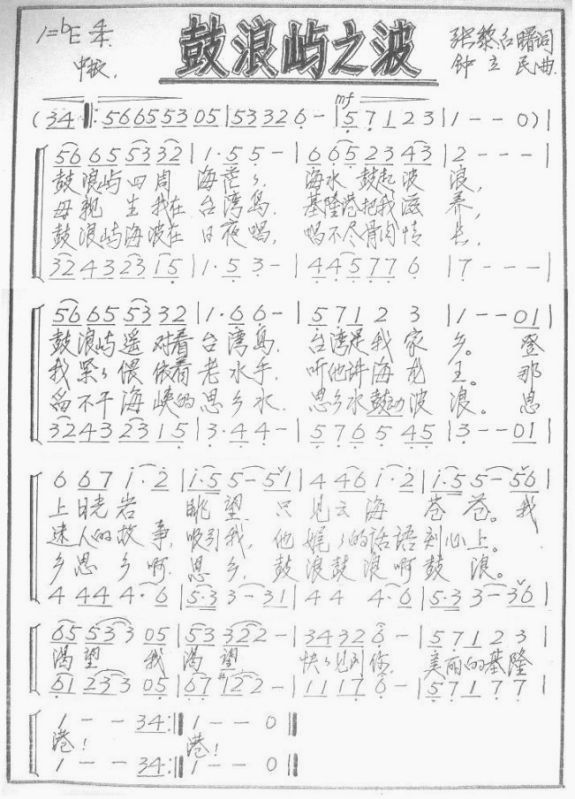 1=bE 4/4
中板.
鼓浪屿之波
张黎 红曙词
钟立民曲
(34 ‖: 56 65 53 05 | 53 32 6 - | mf 5 7 1 2 3 | 1 - - 0) |
56 65 53 32 | 1·5 5 - | 6 65 23 43 | 2 - - - |
鼓浪屿四周 海茫々, 海水鼓起波 浪,
母亲生我在 台湾岛, 基隆港把我滋 养,
鼓浪屿海波在 日夜唱, 唱不尽骨肉情 长,
32 43 23 15 | 1·5 3 - | 4 45 77 6 | 7 - - - |
56 65 53 32 | 1·6 6 - | 5 71 2 3 | 1 - - 01 |
鼓浪屿遥对着台湾岛, 台湾是我家 乡。 登
我紧々偎依着老水手, 听他讲海龙 王。 那
舀不干海峡的思乡水, 思乡水鼓动波 浪。 思
32 43 23 15 | 3·4 4 - | 5 76 5 45 | 3 - - 01 |
6 67 1·2 | 1·5 5 - 51 | 4 46 1·2 | 1·5 5 - 56 |
上日光岩 眺望, 只见云海 苍苍。我
迷人的故事, 吸引我, 他娓々的话语 到心上。
乡思乡啊, 思乡, 鼓浪鼓浪啊鼓 浪。
4 44 4·6 | 5·3 3 - 31 | 4 4 4·6 | 5·3 3 - 36 |
65 53 3 05 | 53 32 2 - | 34 32 6 - | 5 7 1 2 3 |
渴望 我 渴望 快々见到你, 美丽的基隆
61 23 3 05 | 67 12 2 - | 11 17 6 - | 5 7 1 7 7 |
1 - - 34 :‖ 1 - - 0 ‖
港! 港!
1 - - 34 :‖ 1 - - 0 ‖